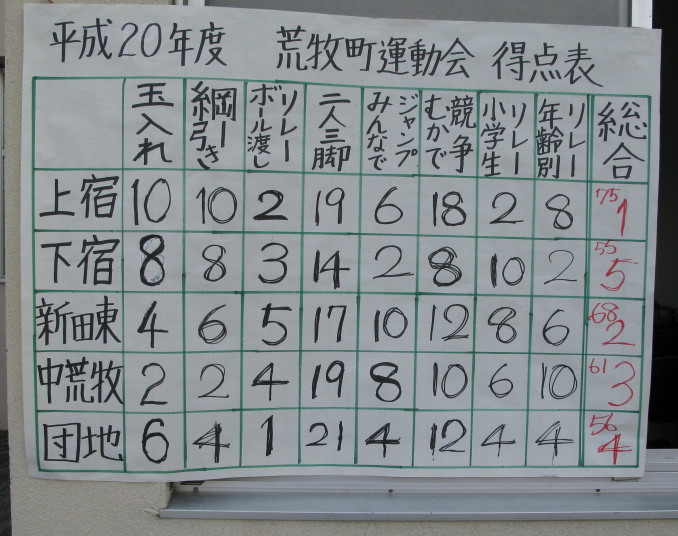 平成20年度 荒牧町運動会 得点表
玉入れ 綱引き ボール渡しリレー 二人三脚 みんなでジャンプ むかで競争 小学生リレー 年齢別リレー 総合
上宿 10 10 2 19 6 18 2 8 175 1
下宿 8 8 3 14 2 8 10 2 55 5
新田東 4 6 5 17 10 12 8 6 68 2
中荒牧 2 2 4 19 8 10 6 10 61 3
団地 6 4 1 21 4 12 4 4 56 4